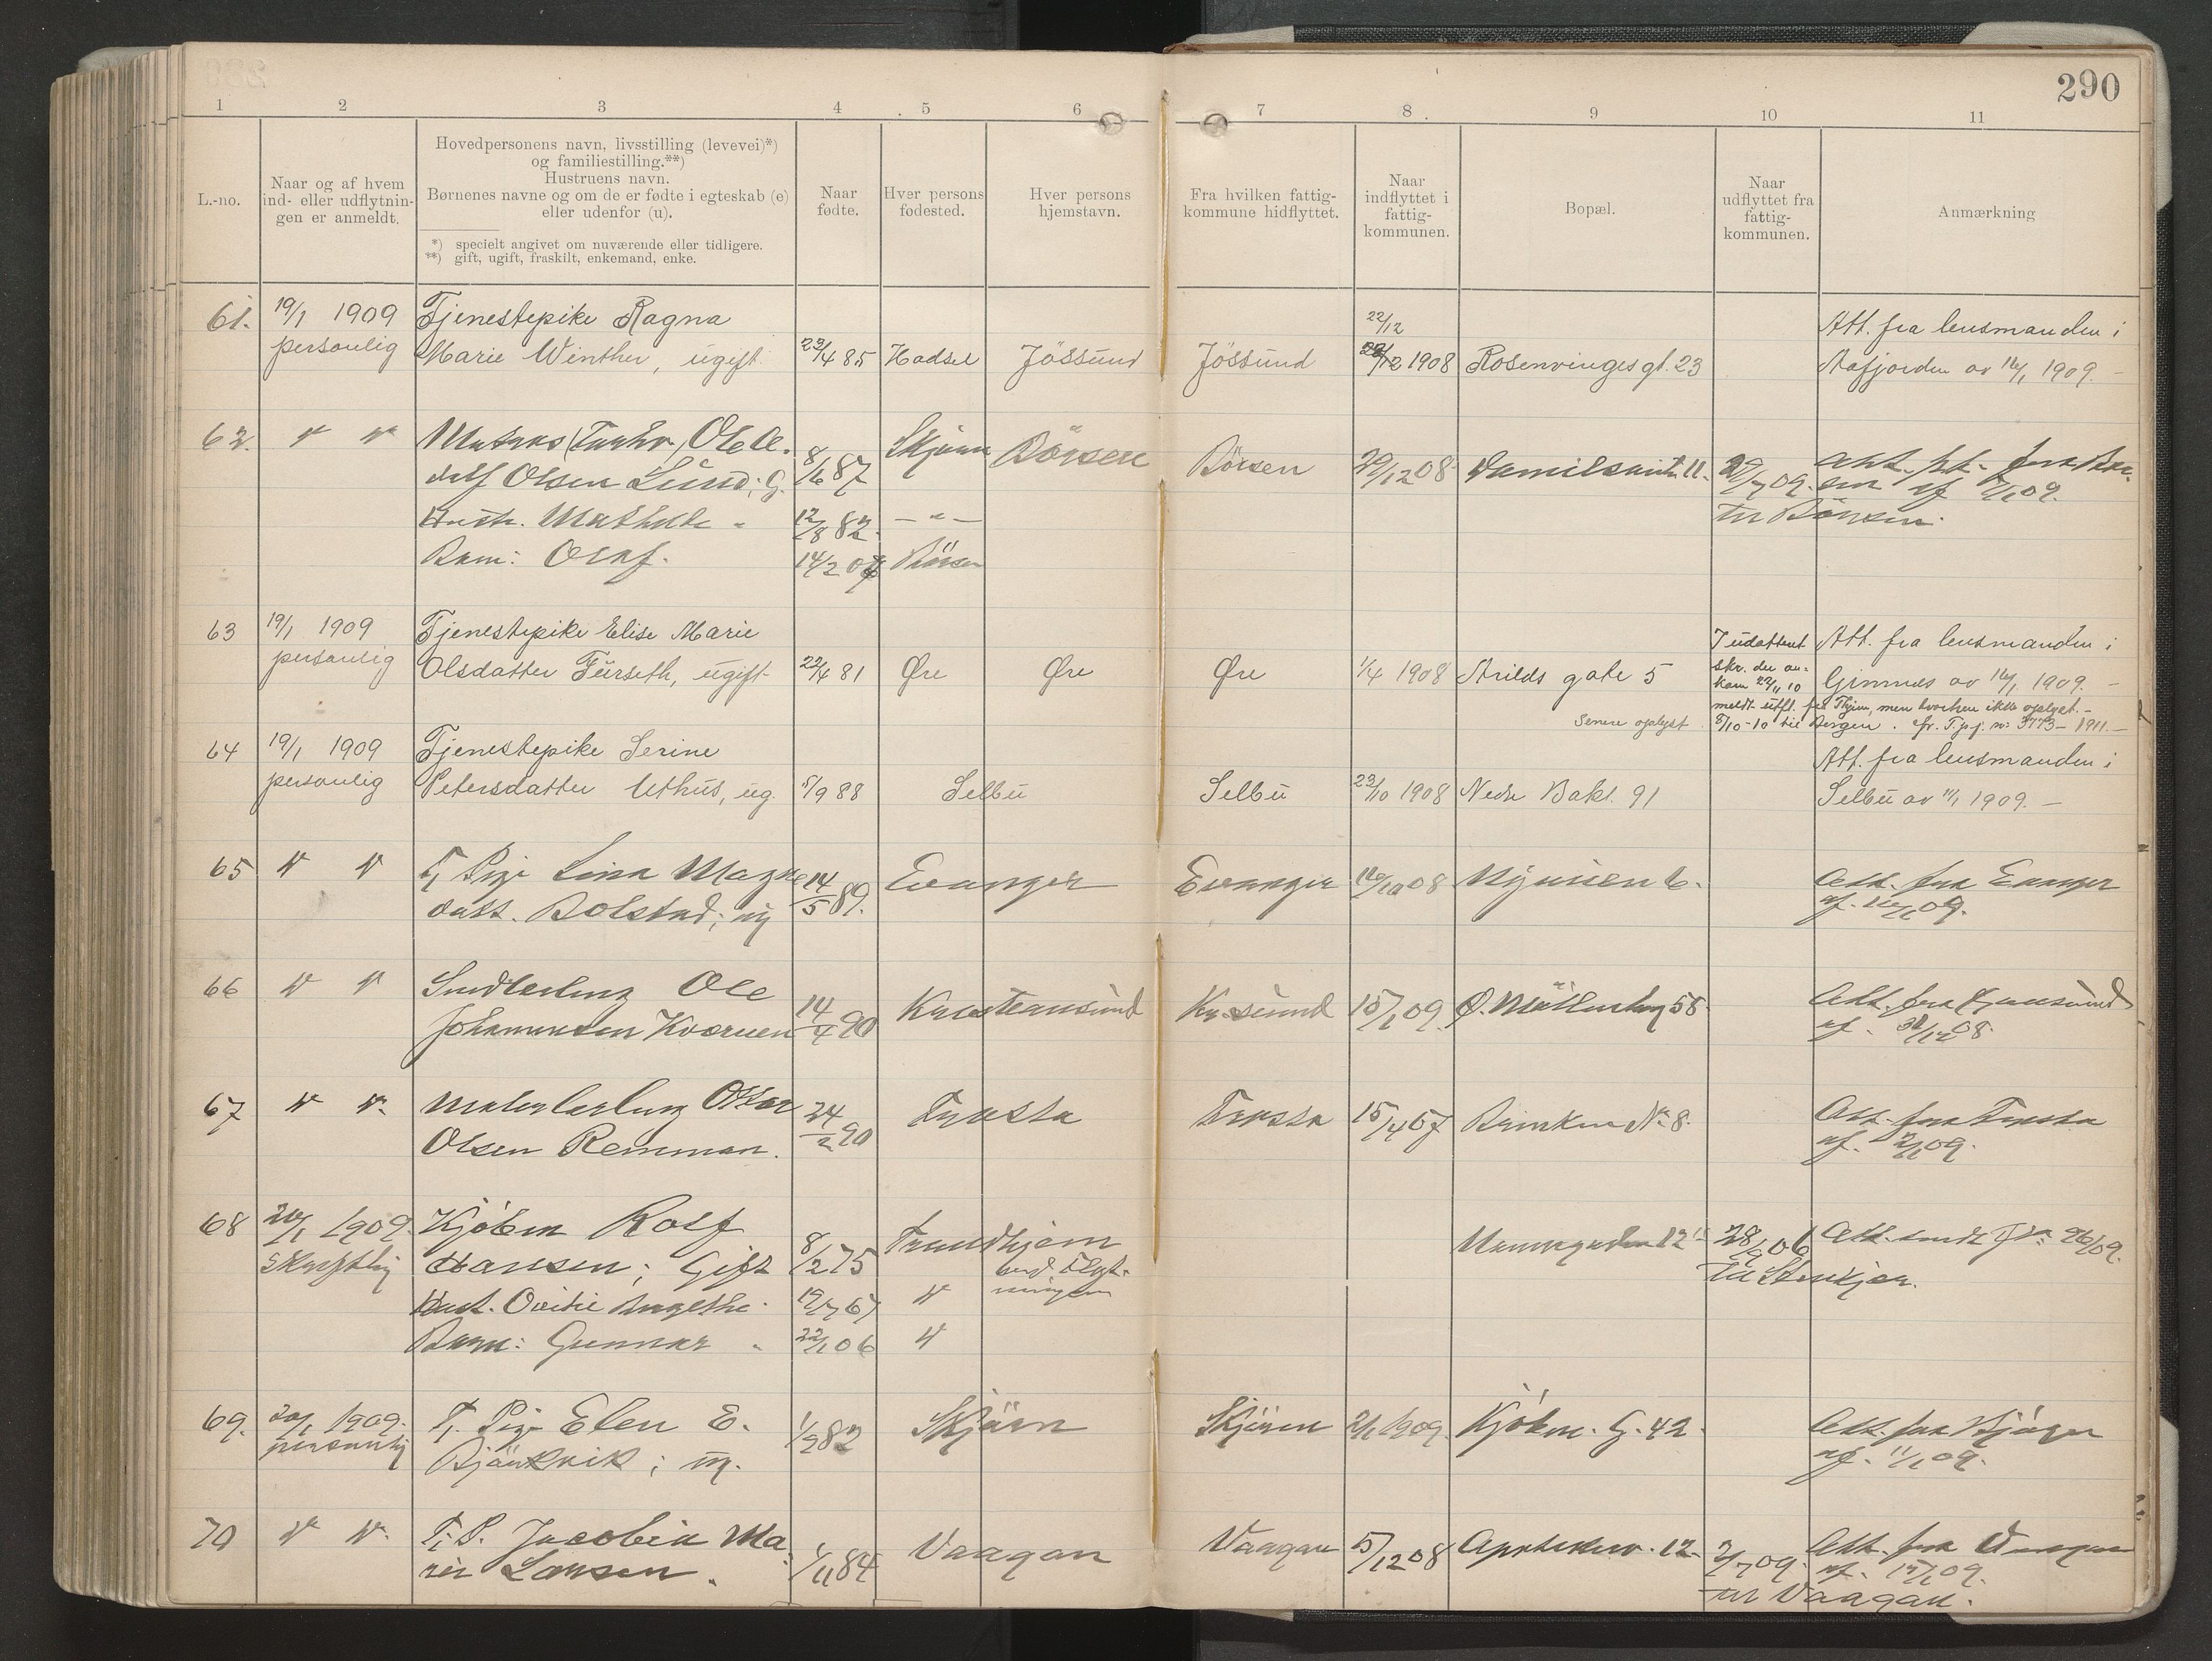 290
1 2 3 4 5 6 7 8 9 10 11
L.-no.
Naar og af hvem
ind- eller udflytnin-
gen er anmeldt.
Hovedpersonens navn, livsstilling (levevei)*)
og familiestilling.**)
Hustruens navn.
Børnenes navne og om de er fødte i egteskab (e)
eller udenfor (u).
*) specielt angivet om nuværende eller tidligere.
**) gift, ugift, fraskilt, enkemand, enke.
Naar
fødte.
Hver persons
fødested.
Hver persons
hjemstavn.
Fra hvilken fattig-
kommune hidflyttet.
Naar
indflyttet i
fattig-
kommunen.
Bopæl.
Naar
udflyttet fra
fattig-
kommunen.
Anmærkning
61. 19/1 1909 Tjenestepike Ragna 22/12 Att. fra lensmanden i
personlig Marie Winther, ugift 23/4 85 Hadsel Jössund Jössund 12 1908 Rosenvinges gt. 23 Aafjorden av 16/1 1909. -
62. " " Ole A.
Olsen Lund; G. 8/6 87 Skjørn Börsen Börsen 29/12 08 11. 29/7 09. 09.
Hustr. Mathilde " 12/8 82. - " - til Börsen.
Barn: Olaf. 14/2 Börsen
63 19/1 1909 Tjenestepike Elise Marie I udattest Att. fra lensmanden i
personlig Olsdatter Furseth, ugift 22/4 81 Øre Øre Øre 1/4 1908 Arilds gate 5 skr. der an-
kom 22/11 10 Gimnes av 16/1 1909. -
meldt utfl. fra Thjem, men hvorhen ikke oplyst. -
Senere oplyst 5/10-10 til Bergen. cfr. T.p.j. nr. 3773 - 1911. -
64 19/1 1909 Tjenestepike Serine Att. fra lensmanden i
personlig Petersdatter Uthus, ug. 5/9 88 Selbu Selbu 23/10 1908 Nedre Bakl. 91 Selbu av 11/1 1909. -
65 " " T. Pige Lina Magne
datt. Bolstad; ug 14/5 89. Evanger Evanger 16/10 08 6. Att. fra Evanger
af. 16/1 09.
66 " " Ole
Johannesen Kværnen 14/4 90 Kristiansund Kr.sund 15/1 09. Ø. Möllenberg 58. Att. fra Kr.sund
af. 08.
67 " ". Malerlærling Ottar
Olsen Remman. 24/2 90 Frosta Frosta 15/4 07 Brinken No 8. Att. fra Frosta
af. 09.
68 20/1 1909. Kjöbm Rolf 28/9 06 Att. 09.
Skriftlig Hansen; Gift 8/12 75 Trondhjem til Stenkjær.
Hust. 19/7 67 "
Barn: Gunnar " 22/1 06 "
69. 20/1 1909. T. Pige Elen E.
personlig Bjørkvik; ug. 1/9 82 Skjörn Skjören 2/1 1909. Kjöbm. G. 42. Att. fra
af. 11/1 09.
70 " ". T. P. Jacobia Ma-
rie Larsen. 1/11 84 Vaagan Vaagan 5/12 08 12 2/7 09. Att. fra Vaagan
af. 09.
til Vaagan.